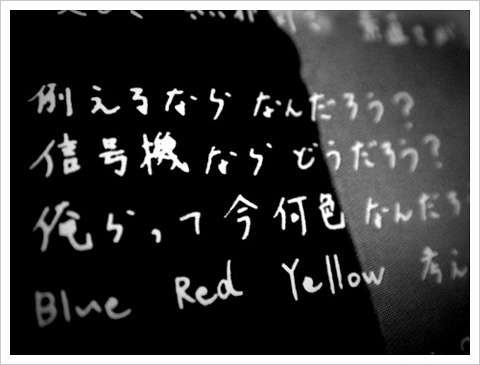 例えるなら なんだろう?
信号機なら どうだろう?
俺らって今何色なんだろ
Blue Red Yellow 考え